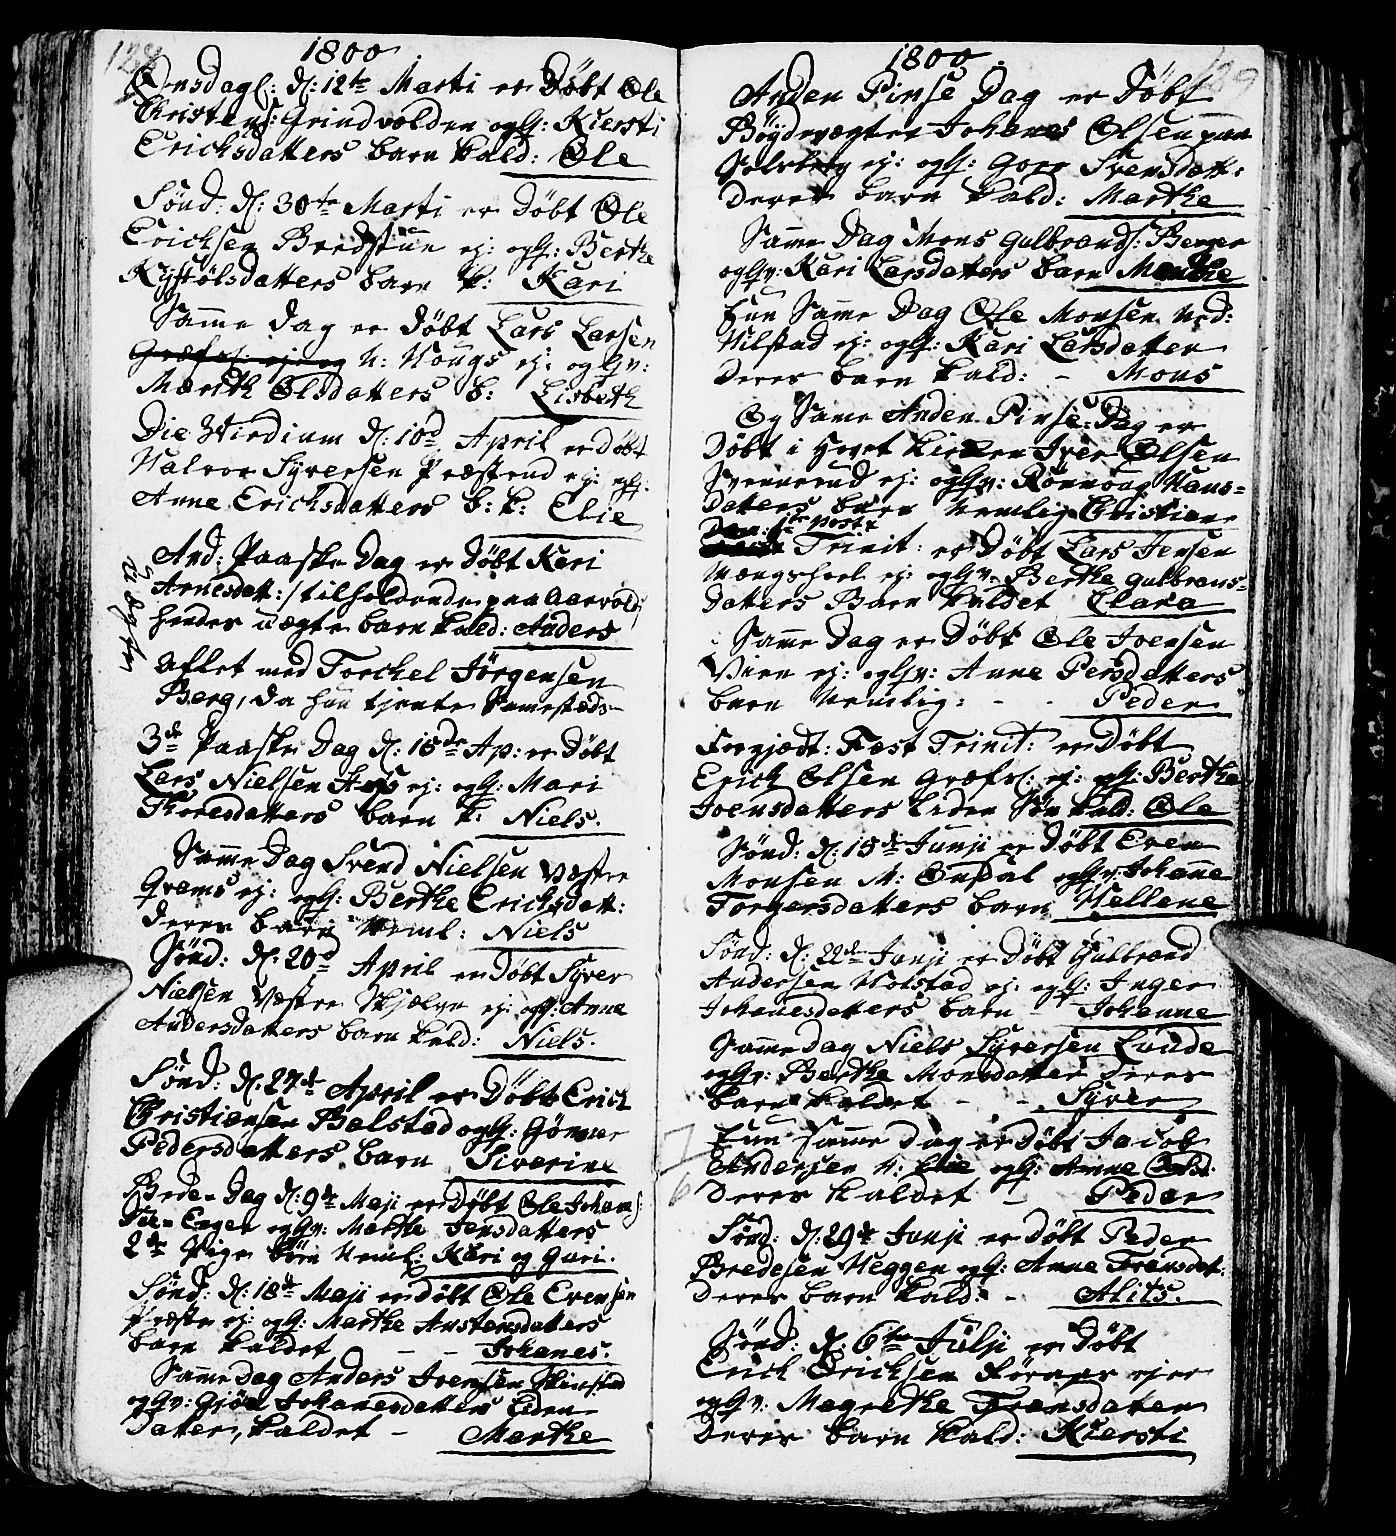 128
1800
Onsdag: d: 12te Marti er Døbt Ole
Christens: Grindvolden og H: Kiersti
Erichsdatters barn kald: Ole
Sønd: d: 30te Marti er Døbt Ole
Erichsen Bredstuen ej: og H: Berthe
Kistølsdatters barn k: Kari
Samme Dag er Døbt Lars Larsen
N: Hougs ej: og Hv:
Marith Olsdatters b: Lisbeth
Die Viridium d: 10d April er Døbt
Halvor Syversen Præsterud ej: og H:
Anne Erichsdatters b: k: Elie
And: Paaske Dag er Døbt Kari
Arnesdatt: / tilholdende paa Aarvold /
hendes uægte barn kald: Anders
Uægte
aflet med Torchel Jörgensen
Berg, da hun tjente Sammesteds
3de Paaske Dag d: 15de Ap: er Døbt
Lars Nielsen ej: og H: Mari
Thoresdatters barn k: Niels.
Samme Dag Svend Nielsen Væstre
Grams ej: og H: Berthe Erichsdatt:
deres barn Neml: Niels
Sønd: d: 20d April er Døbt Syver
Nielsen Væstre ej: og H: Anne
Andersdatters barn kald: Niels.
Sønd: d. 27de April er Døbt Erich
Christiansen Balstad og H: Gönner
Pedersdatters barn Siverine
Bede-Dag d: 9de Maji er Døbt Ole Johans:
Engen og Hv: Marthe Jensdatters
2de Pige børn Neml: Kari og Guri.
Sønd: d: 18de Maji er døbt Ole Evensen
Præste ej: og H: Marthe Austensdatters
barn kaldet - - Johanes.
Samme Dag Anders Iversen
og Hv: Gjöri Johanesdatters liden
Datter, kaldet - Marthe
129
1800.
Anden Pinse Dag er Døbt
Bøÿdevægter Johanes Olsen paa
ej: og H: Goro Svensdatt:
Deres barn kald: Marthe
Samme Dag Mons Gulbrands: Berger
og Hv: Kari Larsdatters barn Marthe
Lun Samme Dag Ole Monsen Ned:
Vilstad ej: og H: Kari Larsdatter
Deres barn kald: - Mons
Og Samme Anden Pinse-Dag er
Døbt i Hovet Kirken Iver Olsen
Svennerud ej: og Hv: Rönnoug Hans=
datters barn Nemlig Christiane
Dom: 1te post
Trinit: er Døbt Lars Jensen
ej: og Hv: Berthe Gulbrans=
datters Barn kaldet Clara
Samme Dag er Døbt Ole Joensen
Vien ej: og Hv: Anne Persdatters
barn Nemlig: - - Peder
Forgjædt: Fæst Trinit: er Døbt
Erich Olsen Græfs: ej: og H: Berthe
Joensdatters liden Søn kald: Ole
Sønd: d: 15de Junji er Døbt Even
Monsen M: Onsdal og Hv: Johanne
Torgersdatters barn Hellene
Sønd: d: 22de Junji er Døbt Gulbrand
Andersen Holstad ej: og H: Inger
Johanesdatters barn - Johanne
Samme Dag Niels Syversen Lunde
og Hv: Berthe Monsdatter Deres
barn kaldet - - Syver
Lun Samme dag er Døbt Jacob
Andersen N: Elie og H: Anne Olsd:
Deres kaldet - Peder
Sønd: d: 29de Junji er døbt Peder
Bredesen Heggen og H: Anne Fransdat:
Deres barn kald: - Alits.
Sønd: d: 6te Julji er Døbt
Erich Erichsen ejer
og Hv: Magrethe Fransdatter
Deres barn kald: Kiersti